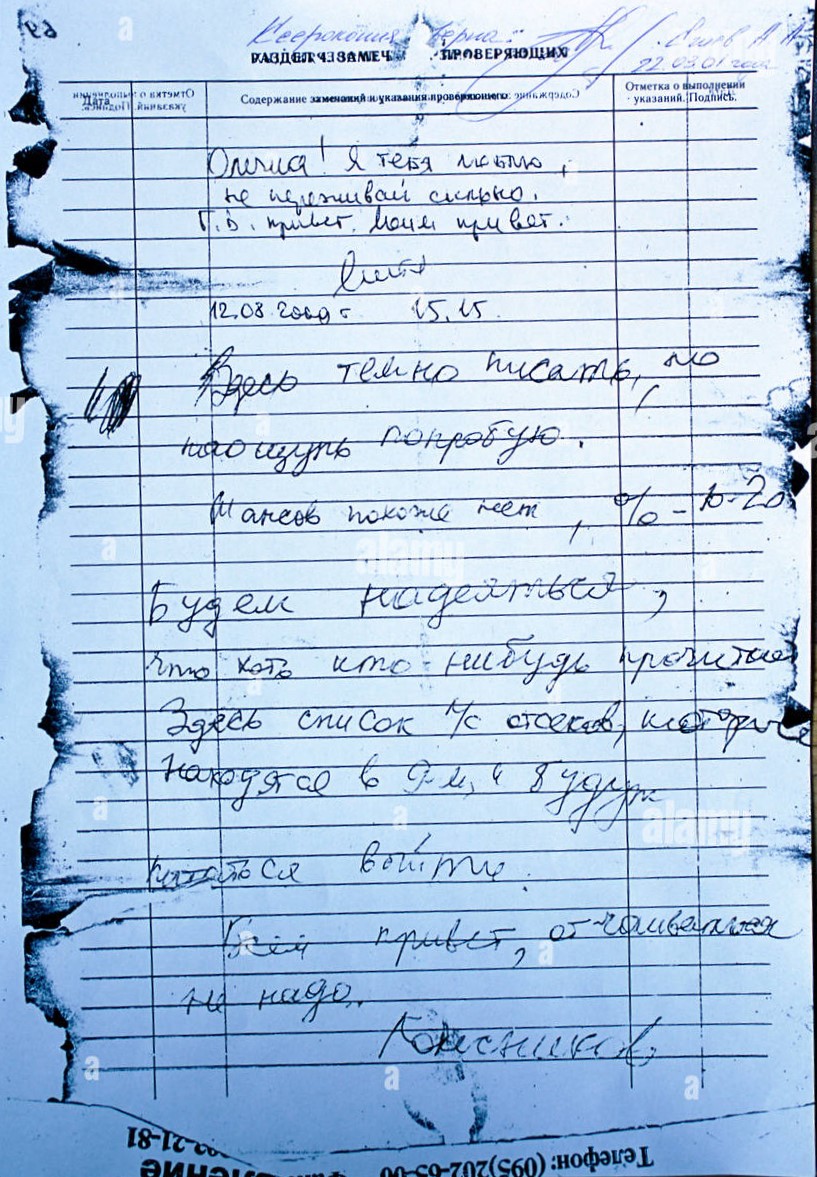 Ксерокопия верна:
22.03.01 года
РАЗДЕЛ ЧЗАМЕЧ ПРОВЕРЯЮЩИХ
Дата
Содержание замечаний и указания проверяющего
Отметка о выполнении указаний. Подпись.
Олечка! Я тебя люблю,
не переживай сильно.
Г.В. привет. Моим привет.
Митя
12.08.2000 г 15.15
Здесь темно писать, но
наощупь попробую.
Шансов похоже нет, % - 10-20
Будем надеяться,
что хоть кто-нибудь прочитает
Здесь список л/с отсеков, которые
находятся в 9-м, и будут
пытаться выйти.
Всем привет, отчаиваться
не надо.
Колесников
Телефон: (095)202-65-00
21-81